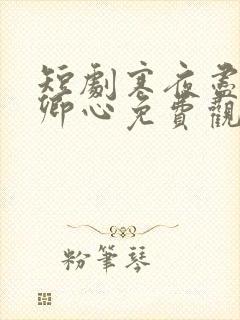 短劇寒夜盡
卿心免費觀
粉筆琴